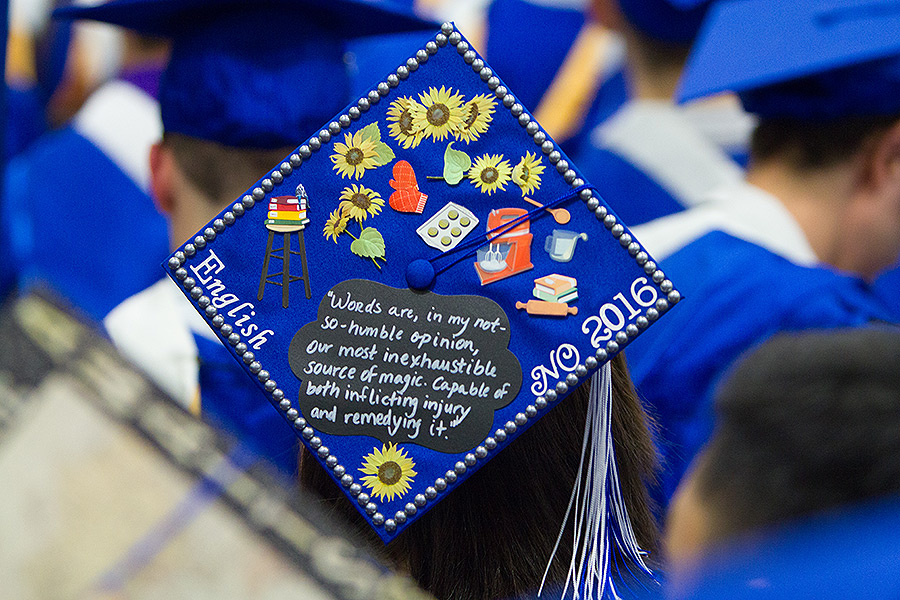 English
NO 2016
"Words are, in my not-
so-humble opinion,
our most inexhaustible
source of magic. Capable of
both inflicting injury
and remedying it."